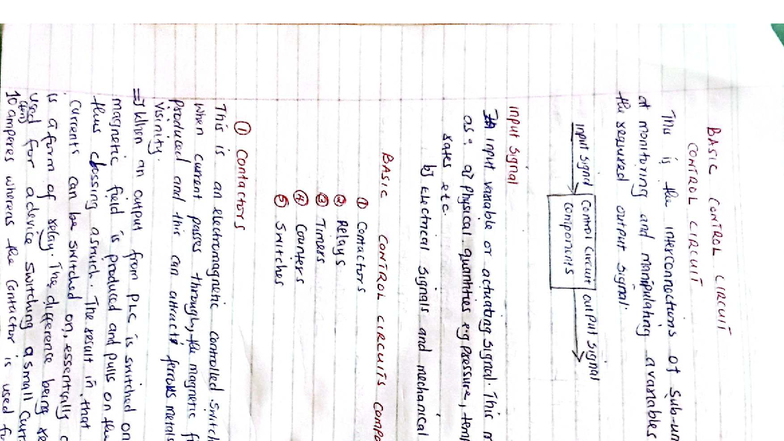 BASIC CONTROL CIRCUIT
CONTROL CIRCUIT
This is the interconnections of sub-un
at monitoring and manipulating a variables
the required output signal.
input signal
Control Circuit
Components
output signal
Input Signal
input variable or actuating signal. This m
as:- a) Physical quantities e.g Pressure, tem
rates etc
b) Electrical signals and mechanical
BASIC CONTROL CIRCUITS COMPO
① Contactors
② Relays
③ Timers
④ Counters
⑤ Switches
① Contactors
This is an electromagnetic controlled Switch
when current passes through, the magnetic f
produced and this can attracts ferrous metals
visinity.
⇒ When an output from PLC is switched on
magnetic field is produced and pulls on the
thus closing as much. The result in, that
Currents can be switched on, essentially c
is a form of relay. The difference being re
used for a device switching a small Curr
10 amperes whereas the Contactor is used f